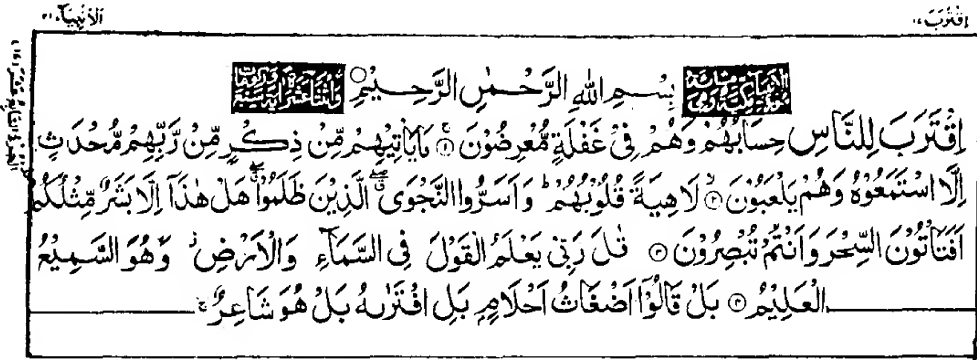 اِقْتَرَبَ ۱۷
اَلْاَنْبِيَآء ۲۱
بِسْمِ اللهِ الرَّحْمٰنِ الرَّحِيْمِ
اِقْتَرَبَ لِلنَّاسِ حِسَابُهُمْ وَهُمْ فِىْ غَفْلَةٍ مُّعْرِضُوْنَ ۱ مَا يَاْتِيْهِمْ مِّنْ ذِكْرٍ مِّنْ رَّبِّهِمْ مُّحْدَثٍ
اِلَّا اسْتَمَعُوْهُ وَهُمْ يَلْعَبُوْنَ ۲ لَاهِيَةً قُلُوْبُهُمْ ؕ وَاَسَرُّوا النَّجْوَى الَّذِيْنَ ظَلَمُوْا هَلْ هٰذَآ اِلَّا بَشَرٌ مِّثْلُكُمْ
اَفَتَاْتُوْنَ السِّحْرَ وَاَنْتُمْ تُبْصِرُوْنَ ۳ قٰلَ رَبِّىْ يَعْلَمُ الْقَوْلَ فِى السَّمَآءِ وَالْاَرْضِ وَهُوَ السَّمِيْعُ
الْعَلِيْمُ ۴ بَلْ قَالُوْٓا اَضْغَاثُ اَحْلَامٍۭ بَلِ افْتَرٰىهُ بَلْ هُوَ شَاعِرٌ